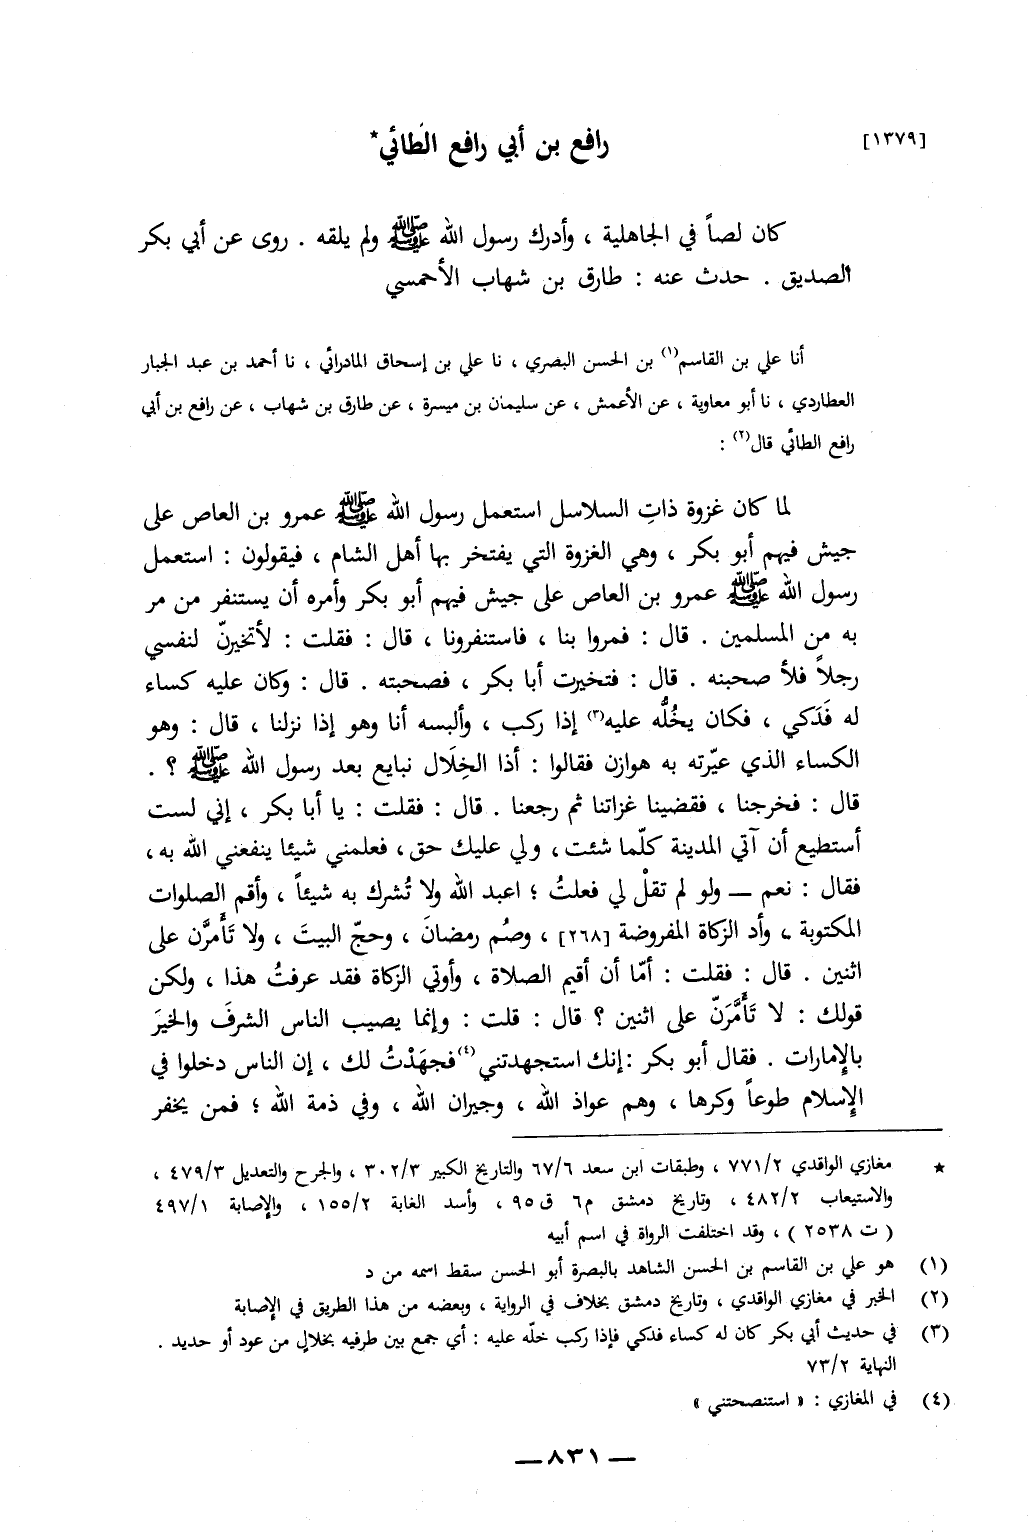 [١٣٧٩] رافع بن أبي رافع الطائي*
كان لصاً في الجاهلية ، وأدرك رسول الله ﷺ ولم يلقه . روى عن أبي بكر
الصديق . حدث عنه : طارق بن شهاب الأحمسي
أنا علي بن القاسم(١) بن الحسن البصري ، نا علي بن إسحاق المادرائي ، نا أحمد بن عبد الجبار
العطاردي ، نا أبو معاوية ، عن الأعمش ، عن سليمان بن ميسرة ، عن طارق بن شهاب ، عن رافع بن أبي
رافع الطائي قال(٢) :
لما كان غزوة ذاتِ السلاسل استعمل رسول الله ﷺ عمرو بن العاص على
جيش فيهم أبو بكر ، وهي الغزوة التي يفتخر بها أهل الشام ، فيقولون : استعمل
رسول الله ﷺ عمرو بن العاص على جيش فيهم أبو بكر وأمره أن يستنفر من مر
به من المسلمين . قال : فمروا بنا ، فاستنفرونا ، قال : فقلت : لأتخيرنّ لنفسي
رجلاً فلأ صحبنه . قال : فتخيرت أبا بكر ، فصحبته . قال : وكان عليه كساء
له فَدَكي ، فكان يخُلُّه عليه(٣) إذا ركب ، وألبسه أنا وهو إذا نزلنا ، قال : وهو
الكساء الذي عيّرته به هوازن فقالوا : أذا الخِلَال نبايع بعد رسول الله ﷺ ؟ .
قال : فخرجنا ، فقضينا غزاتنا ثم رجعنا . قال : فقلت : يا أبا بكر ، إني لست
أستطيع أن آتي المدينة كلّما شئت ، ولي عليك حق ، فعلمني شيئا ينفعني الله به ،
فقال : نعم — ولو لم تقلْ لي فعلتُ ؛ اعبد الله ولا تُشرك به شيئاً ، وأقم الصلوات
المكتوبة ، وأد الزكاة المفروضة [٢٦٨] ، وصُم رمضانَ ، وحجّ البيتَ ، ولا تَأَمَّرن على
اثنين . قال : فقلت : أمّا أن أقيم الصلاة ، وأوتي الزكاة فقد عرفتُ هذا ، ولكن
قولك : لا تَأَمَّرَنّ على اثنين ؟ قال : قلت : وإنما يصيب الناس الشرفَ والخيرَ
بالإمارات . فقال أبو بكر :إنك استجهدتني(٤) فجهَدْتُ لك ، إن الناس دخلوا في
الإسلام طوعاً وكرها ، وهم عواذ الله ، وجيران الله ، وفي ذمة الله ؛ فمن يخفر
★ مغازي الواقدي ٧٧١/٢ ، وطبقات ابن سعد ٦٧/٦ والتاريخ الكبير ٣٠٢/٣ ، والجرح والتعديل ٤٧٩/٣ ،
والاستيعاب ٤٨٢/٢ ، وتاريخ دمشق م٦ ق ٩٥ ، وأسد الغابة ١٥٥/٢ ، والإصابة ٤٩٧/١
( ت ٢٥٣٨ ) ، وقد اختلفت الرواة في اسم أبيه
(١) هو علي بن القاسم بن الحسن الشاهد بالبصرة أبو الحسن سقط اسمه من د
(٢) الخبر في مغازي الواقدي ، وتاريخ دمشق بخلاف في الرواية ، وبعضه من هذا الطريق في الإصابة
(٣) في حديث أبي بكر كان له كساء فدكي فإذا ركب خلّه عليه : أي جمع بين طرفيه بخلالٍ من عود أو حديد .
النهاية ٧٣/٢
(٤) في المغازي : « استنصحتني »
— ٨٣١ —